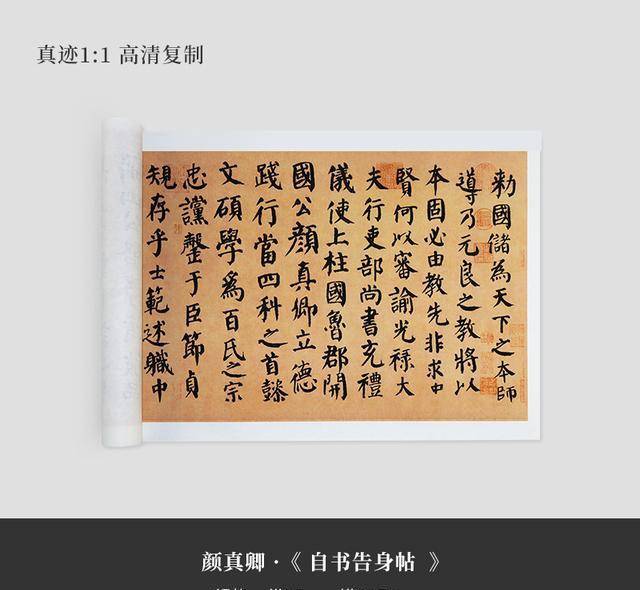 真迹1:1 高清复制
勑國儲為天下之本師
導乃元良之教將以
本固必由教先非求中
賢何以審諭光祿大
夫行吏部尚書充禮
儀使上柱國魯郡開
國公顏真卿立德
踐行當四科之首懿
文碩學爲百氏之宗
忠讜罄于臣節貞
規存乎士範述職中
颜真卿·《 自书告身帖 》